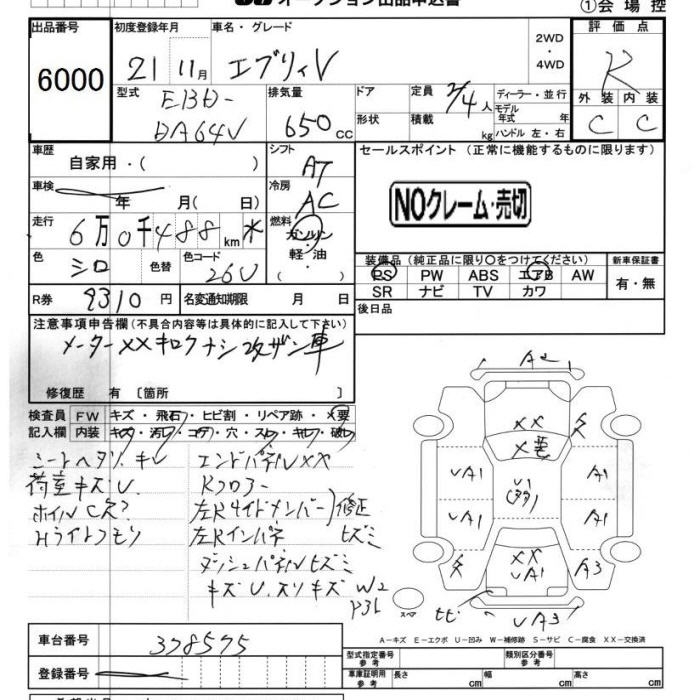 オークション出品申込書
①会場控
出品番号 初度登録年月 車名・グレード 2WD・4WD 評価点
6000 21 11月 エブリィV R
型式 排気量 ドア 定員 ディーラー・並行 外装 内装
EBD- 2/4人 モデル年式 年 C C
DA64V 650cc 形状 積載 kg ハンドル 左・右
車歴 シフト セールスポイント (正常に機能するものに限ります)
自家用・( ) AT
車検 年 月( 日) 冷房 AC NOクレーム・売切
走行 6万0千488km 燃料 ガソリン・軽油・
色 シロ 色替 色コード 26U 装備品(純正品に限り○をつけてください) 新車保証書
PS PW ABS エアB AW 有・無
SR ナビ TV カワ
R券 9310円 名変通知期限 月 日 後日品
注意事項申告欄(不具合内容等は具体的に記入して下さい)
メーターXXキロクナシ改ザン車
修復歴 有 〔箇所 〕
検査員 FW キズ・飛石・ヒビ割・リペア跡・×要
記入欄 内装 キズ・汚レ・コゲ・穴・スレ・キレ・破レ
シートヘタリ・キレ エンドパネルXX
荷室キズU. Rフロアー
ホイルCR? 左Rサイドメンバー 修正
Hライトクモリ 左Rインパネ ヒズミ
ダッシュパネルヒズミ
キズU.スリキズ W2
A2
XX
X要
UA1 U1 A1
UA1 A1
XX
UA1 A3
スペ
UA3
A-キズ E-エクボ U-凹み W-補修跡 S-サビ C-腐食 XX-交換済
車台番号 378575 型式指定番号 参考 類別区分番号 参考
登録番号 車庫証明用 参考 長さ cm 幅 cm 高さ cm